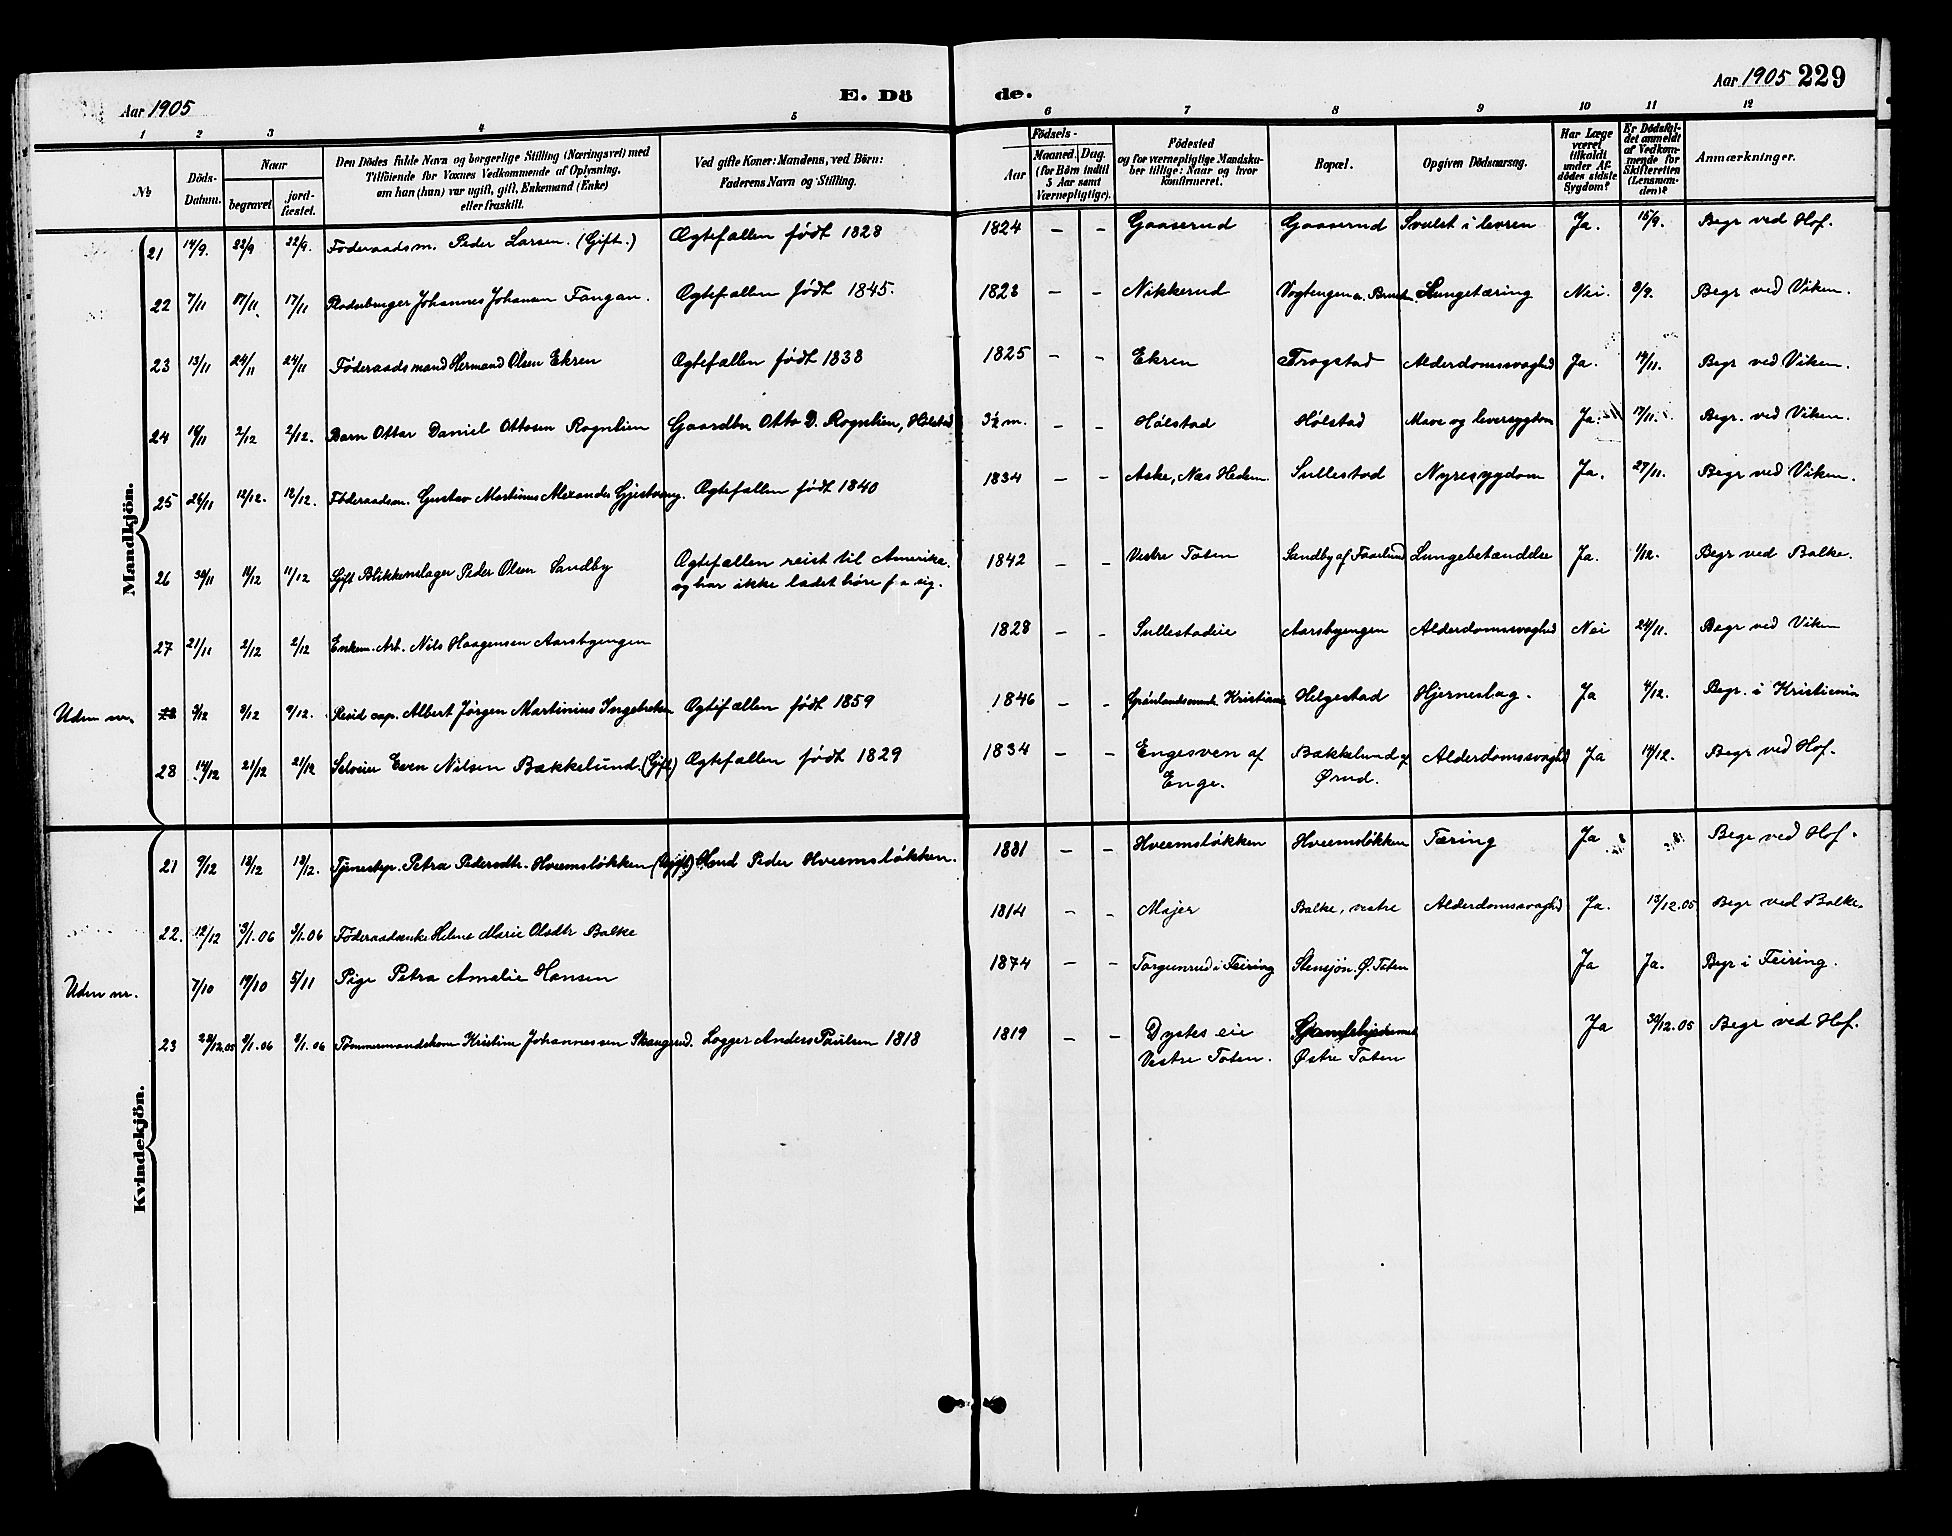 Aar 1905 E. Dö de. Aar 1905 229
1 2 3 4 5 6 7 8 9 10 11 12
№
Döds-Datum.
Naar
begravet.
jord-fæstet.
Den Dödes fulde Navn og borgerlige Stilling (Næringsvei) med
Tilföiende for Voxnes Vedkommende af Oplysning,
om han (hun) var ugift, gift, Enkemand (Enke)
eller fraskilt.
Ved gifte Koner: Mandens, ved Börn:
Faderens Navn og Stilling.
Födsels-
Aar
Maaned. Dag.
(for Börn indtil
5 Aar samt
Værnepligtige).
Födested
og for værnepligtige Mandska-
ber tillige: Naar og hvor
konfirmeret.
Bopæl.
Opgiven Dödsaarsag.
Har Læge
været
tilkaldt
under Af-
dödes sidste
Sygdom?
Er Dödsfal-
det anmeldt
af Vedkom-
mende for
Skifteretten
(Lensman-
den)?
Anmærkninger.
Mandkjön.
21 14/9. 22/9 22/9. Föderaadsm. Peder Larsen. (Gift.) Ægtefællen født 1828 1824 – – Gaaserud Gaaserud Svulst i levren Ja. 15/9. Begr ved Hof.
22 7/11 17/11 17/11 Johannes Johansen Fangan. Ægtefællen født 1845. 1823 – – Nikkerud Lungetæring Nei. 8/9. Begr ved Viken.
23 13/11 24/11 24/11 Føderaadsmand Hermand Olsen Ekren Ægtefællen født 1838 1825 – – Ekren Trogstad Alderdomssvaghed Ja. 14/11. Begr ved Viken.
24 16/11 2/12 2/12. Barn Ottar Daniel Ottosen Rognlien Gaardbr. Otto D. Rognlien, Hólstad 3½ m. – – Hólstad Hólstad Mave og leversygdom Ja. 17/11. Begr. ved Viken.
25 26/11 12/12. 12/12. Føderaadsm. Gustav Martinus Alexander Gjestvang. Ægtefællen født 1840 1834 – – Aske, Næs Hedem. Sullestad Nyresygdom Ja. 27/11. Begr ved Viken.
26 30/11 11/12 11/12 Gift Blikkenslager Peder Olsen Sandby Ægtefællen reist til Amerika
og har ikke ladet høre fra sig. 1842 – – Vestre Toten Sandby af Faarlund Lungebetændelse Ja. 1/12. Begr ved Balke.
27 21/11 2/12 2/12 Enkem. Arb. Nils Haagensen Aarsbyengen 1828 – – Sullestadeie Aarsbyengen Alderdomssvaghed Nei 24/11. Begr ved Viken
Uden nr. 3/12 9/12 9/12. Resid cap. Albert Jørgen Martinius Ingebretsen Ægtefællen født 1859 1846 – – Kristiania Helgestad Hjerneslag. Ja 4/12. Begr. i Kristiania
28 14/12 21/12 21/12 Selveier Even Nilsen Bækkelund. (Gift) Ægtefællen født 1829 1834 – – Engesven af
Enge. Bækkelund af
Ørud. Alderdomssvaghed Ja 14/12. Begr ved Hof.
Kvindekjön.
21 9/12 18/12 18/12. Tjenestep. Petra Pedersdtr. Hveemsløkken (Ugift) Smed Peder Hveemsløkken. 1881 – – Hveemsløkken Hveemsløkken Tæring Ja Begr ved Hof.
22. 12/12 3/1.06 3/1.06 Føderaadsenke Helene Marie Olsdtr Balke 1814 – – Majer Balke, vestre Alderdomssvaghed Ja. 13/12.05 Begr ved Balke.
Uden nr. 7/10 14/10 5/11 Pige Petra Amalie Hansen 1874 – – Torgunrud i Feiring Stensjøn. Ø. Toten Ja Ja. Begr i Feiring.
23 28/12.05 9/1.06 9/1.06 Tømmermandskone Kristine Johannessen Skaugerud. Logger Anders Paulsen 1818 1819 – – Dystes eie
Vestre Toten. Østre Toten Ja 30/12.05 Begr ved Hof.